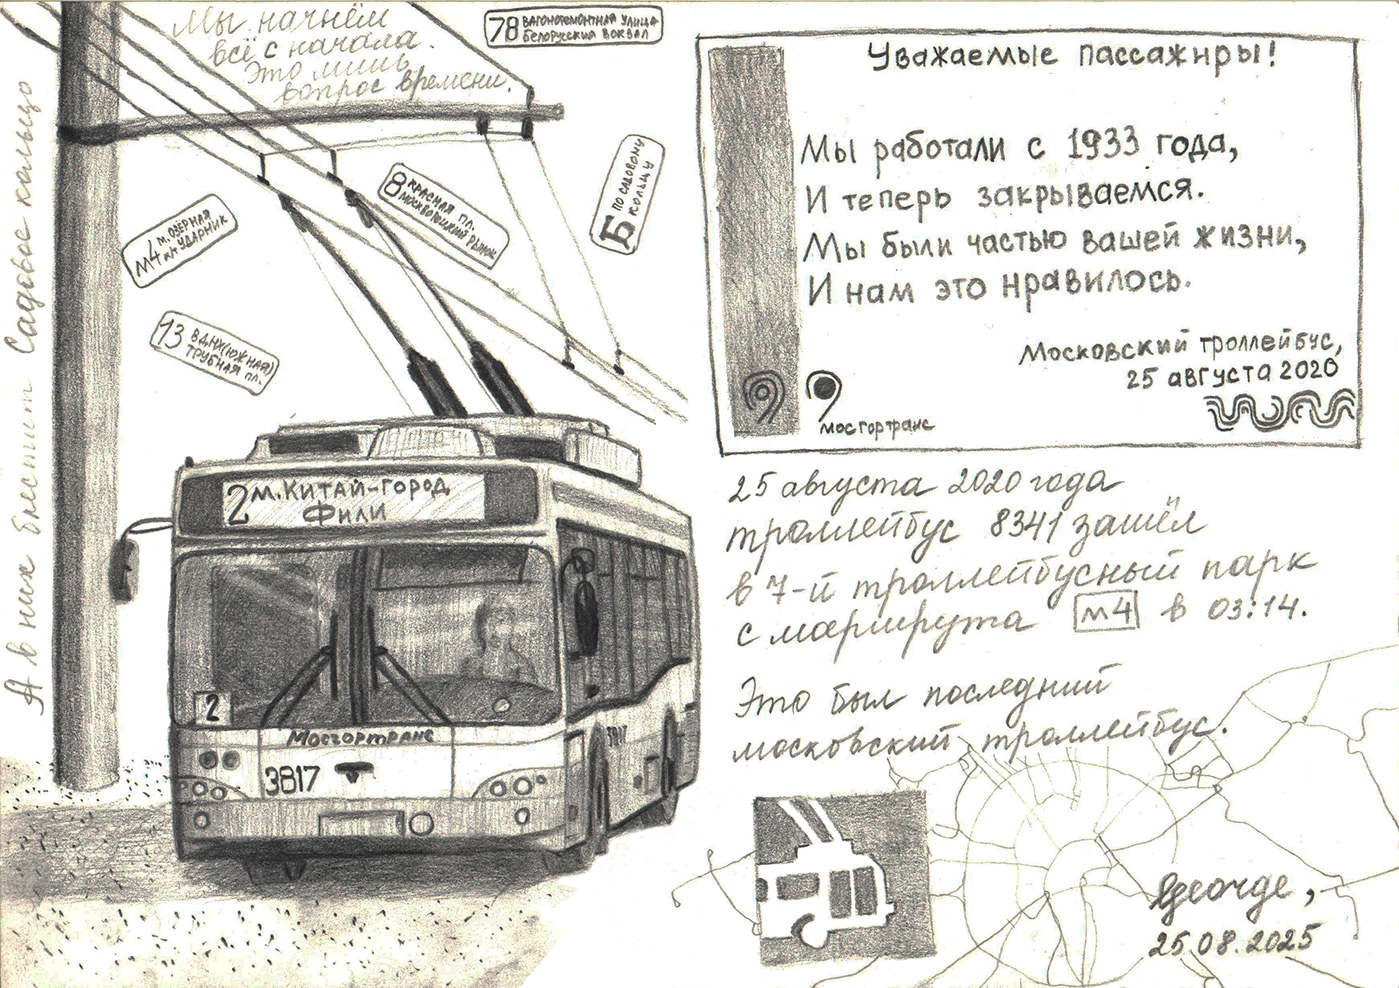 А в них блестит Садовое кольцо
Мы начнём
всё с начала.
Это лишь
вопрос времени.
78 ВАГОНОРЕМОНТНАЯ УЛИЦА
БЕЛОРУССКИЙ ВОКЗАЛ
м4 М. ОЗЁРНАЯ
к/т УДАРНИК
8 КРАСНАЯ ПЛ.
МОСКВОРЕЦКИЙ РЫНОК
Б ПО САДОВОМУ
КОЛЬЦУ
13 ВДНХ (ЮЖНАЯ)
ТРУБНАЯ ПЛ.
2 М. КИТАЙ-ГОРОД
ФИЛИ
2
Мосгортранс
3817
3817
Уважаемые пассажиры!
Мы работали с 1933 года,
И теперь закрываемся.
Мы были частью вашей жизни,
И нам это нравилось.
Московский троллейбус,
25 августа 2020
мосгортранс
25 августа 2020 года
троллейбус 8341 зашёл
в 7-й троллейбусный парк
с маршрута м4 в 03:14.
Это был последний
московский троллейбус.
George,
25.08.2025